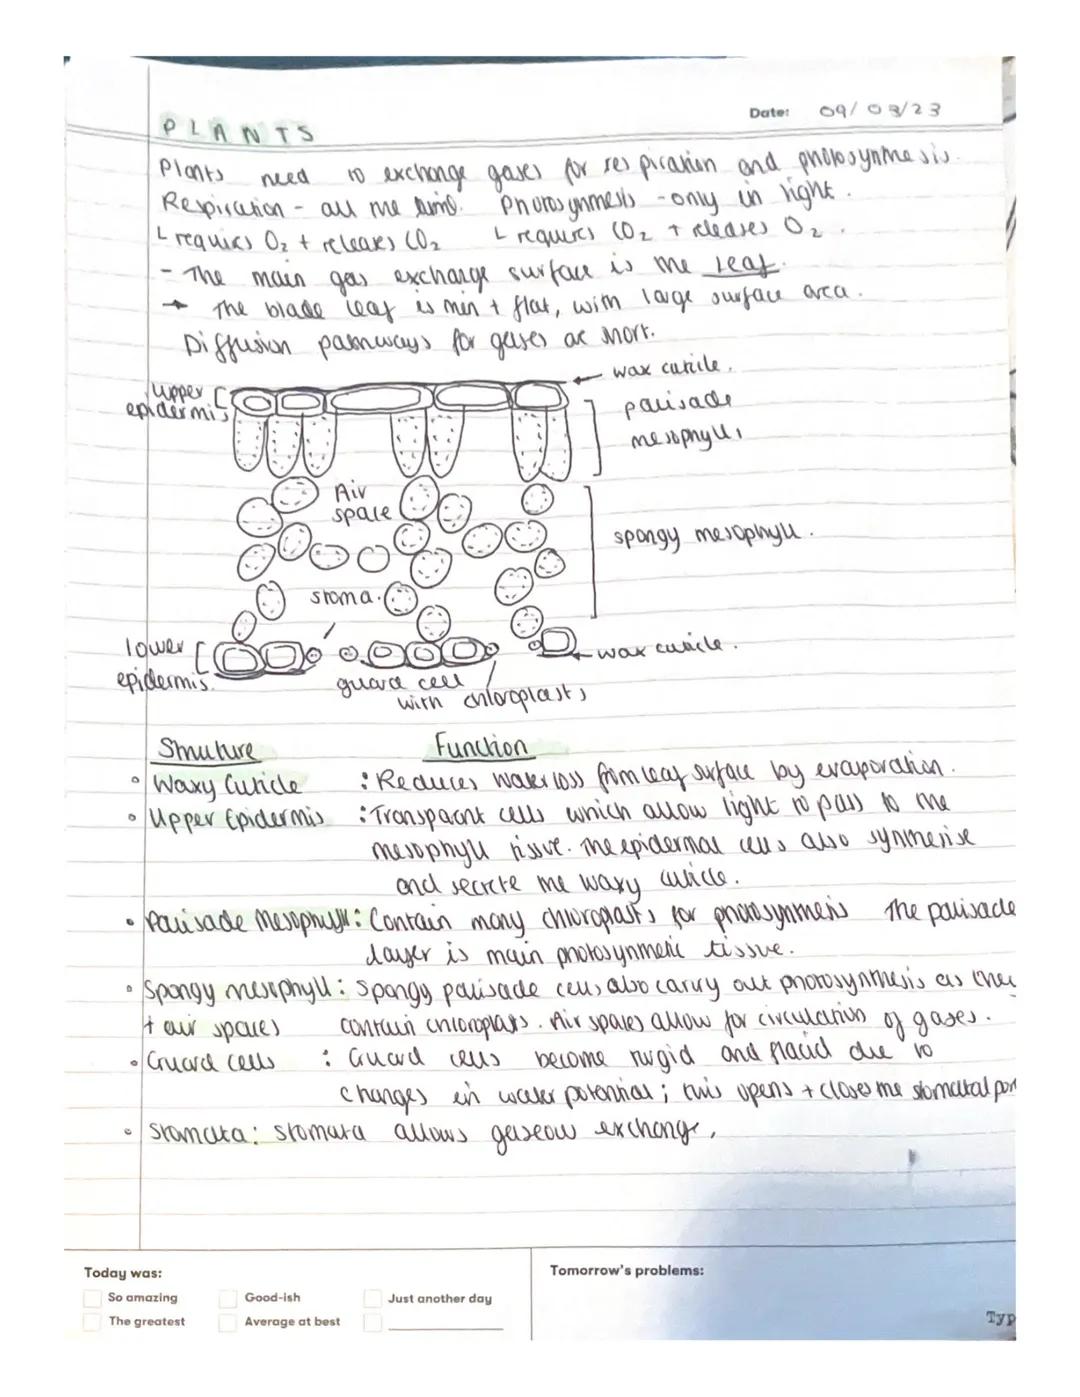 PLANTS
Date: 09/03/23
Plants need to exchange gases for respiration and photosynthesis.
Respiration - all the time. Photosynthesis - only in light.
└ requires O₂ + releases CO₂ └ requires CO₂ + releases O₂.
- The main gas exchange surface is the leaf.
→ The blade leaf is thin + flat, with large surface area.
Diffusion pathways for gases are short.
wax cuticle.
Upper
epidermis
palisade
mesophyll
Air
space
spongy mesophyll.
stoma.
lower
epidermis.
wax cuticle.
guard cell
with chloroplasts
Structure Function
• Waxy Cuticle : Reduces water loss from leaf surface by evaporation.
• Upper Epidermis : Transparent cells which allow light to pass to the
mesophyll tissue. The epidermal cells also synthesise
and secrete the waxy cuticle.
• Palisade Mesophyll : Contain many chloroplasts for photosynthesis The palisade
layer is main photosynthetic tissue.
• Spongy mesophyll : Spongy palisade cells also carry out photosynthesis as they
+ air spaces contain chloroplasts. Air spaces allow for circulation of gases.
• Guard cells : Guard cells become turgid and flacid due to
changes in water potential ; this opens + closes the stomatal
• Stomata : stomata allows gaseous exchange,
Today was:
So amazing Good-ish Just another day
The greatest Average at best
Tomorrow's problems:
Typ